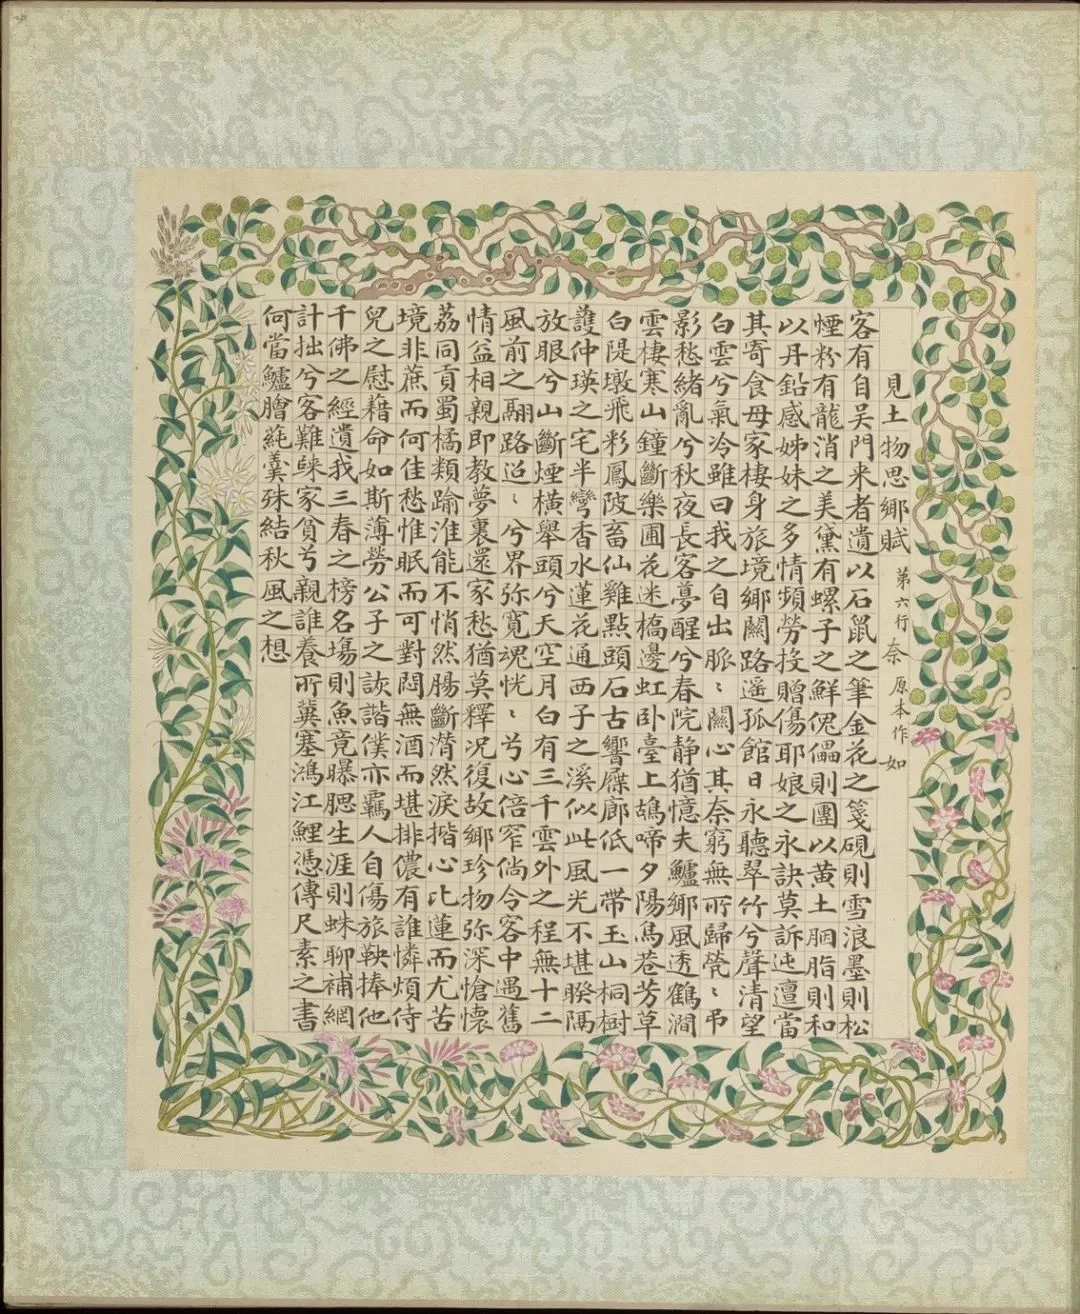 見土物思鄉賦 第六行奈原本作如
客有自吳門来者遺以石鼠之筆金花之箋硯則雪浪墨則松
煙粉有龍消之美黛有螺子之鮮傀儡則團以黄土胭脂則和
以丹鉛感姊妹之多情頻勞投贈傷耶娘之永訣莫訴迍邅當
其寄食母家棲身旅境鄉關路遥孤館日永聽翠竹兮聲清望
白雲兮氣冷雖曰我之自出脈〻關心其奈窮無所歸煢〻弔
影愁緒亂兮秋夜長客夢醒兮春院静猶憶夫鱸鄉風透鶴澗
雲棲寒山鐘斷樂圃花迷橋邊虹卧臺上鴣啼夕陽馬巷芳草
白隄墩飛彩鳳陂畜仙雞點頭石古響屧廊低一帶玉山桐樹
護仲瑛之宅半彎香水蓮花通西子之溪似此風光不堪暌隔
放眼兮山斷煙橫舉頭兮天空月白有三千雲外之程無十二
風前之翮路迢〻兮界弥寬魂恍〻兮心倍窄倘令客中遇舊
情益相親即教夢裏還家愁猶莫釋况復故鄉珍物弥深愴懷
荔同貢蜀橘類踰淮能不悄然腸斷潸然淚揩心比蓮而尤苦
境非蔗而何佳愁惟眠而可對悶無酒而堪排儂有誰憐煩侍
兒之慰藉命如斯薄勞公子之詼諧僕亦羈人自傷旅鞅捧他
千佛之經遺我三春之榜名塲則魚竟曝腮生涯則蛛聊補網
計拙兮客難家貧兮親誰養所冀塞鴻江鯉憑傳尺素之書
何當鱸膾蒓羹殊結秋風之想